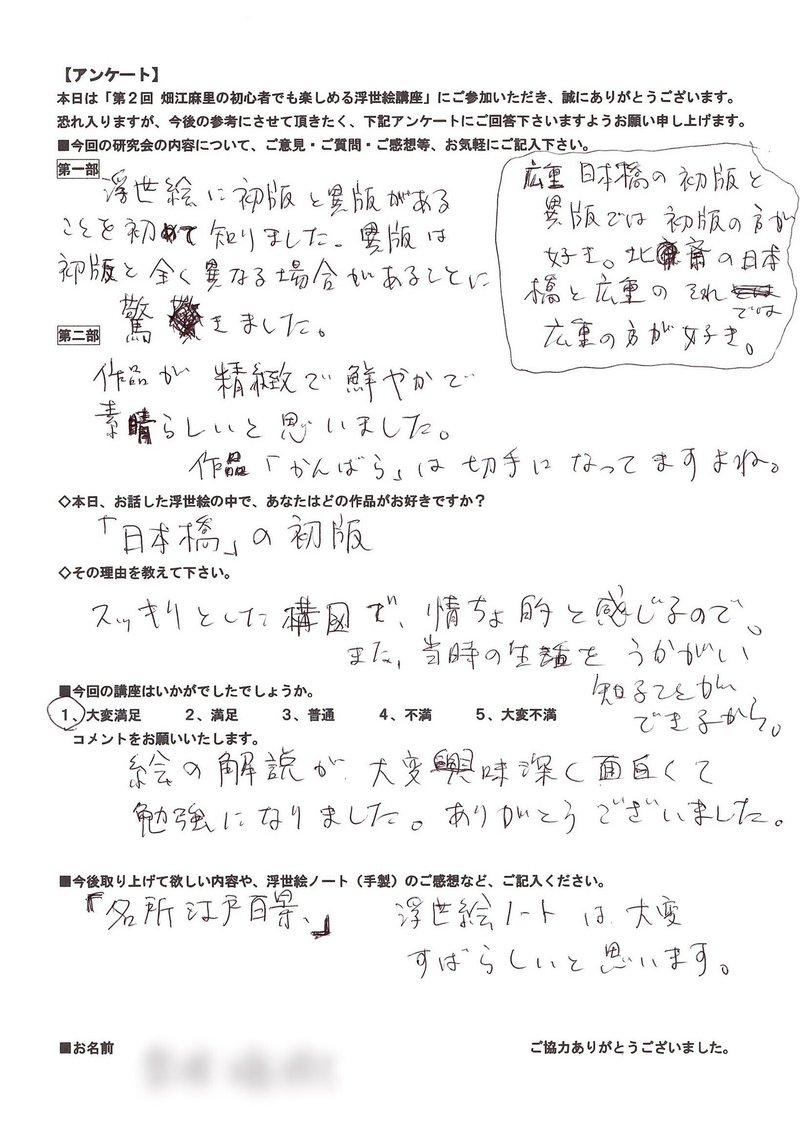 【アンケート】
本日は「第２回 畑江麻里の初心者でも楽しめる浮世絵講座」にご参加いただき、誠にありがとうございます。
恐れ入りますが、今後の参考にさせて頂きたく、下記アンケートにご回答下さいますようお願い申し上げます。
■今回の研究会の内容について、ご意見・ご質問・ご感想等、お気軽にご記入下さい。
第一部
浮世絵に初版と異版がある
ことを初めて知りました。異版は
初版と全く異なる場合があることに
驚きました。
広重 日本橋の初版と
異版では初版の方が
好き。北斎の日本
橋と広重のそれ
では
広重の方が好き。
第二部
作品が精緻で鮮やかで
素晴らしいと思いました。
作品「かんばら」は切手になってますよね。
◇本日、お話した浮世絵の中で、あなたはどの作品がお好きですか？
「日本橋」の初版
◇その理由を教えて下さい。
スッキリとした構図で、情ちょ的と感じるので。
また、当時の生活をうかがい
知ることが
できるから。
■今回の講座はいかがでしたでしょうか。
１、大変満足　２、満足　３、普通　４、不満　５、大変不満
コメントをお願いいたします。
絵の解説が、大変興味深く面白くて
勉強になりました。ありがとうございました。
■今後取り上げて欲しい内容や、浮世絵ノート（手製）のご感想など、ご記入ください。
「名所江戸百景、」　浮世絵ノートは大変
すばらしいと思います。
■お名前
ご協力ありがとうございました。